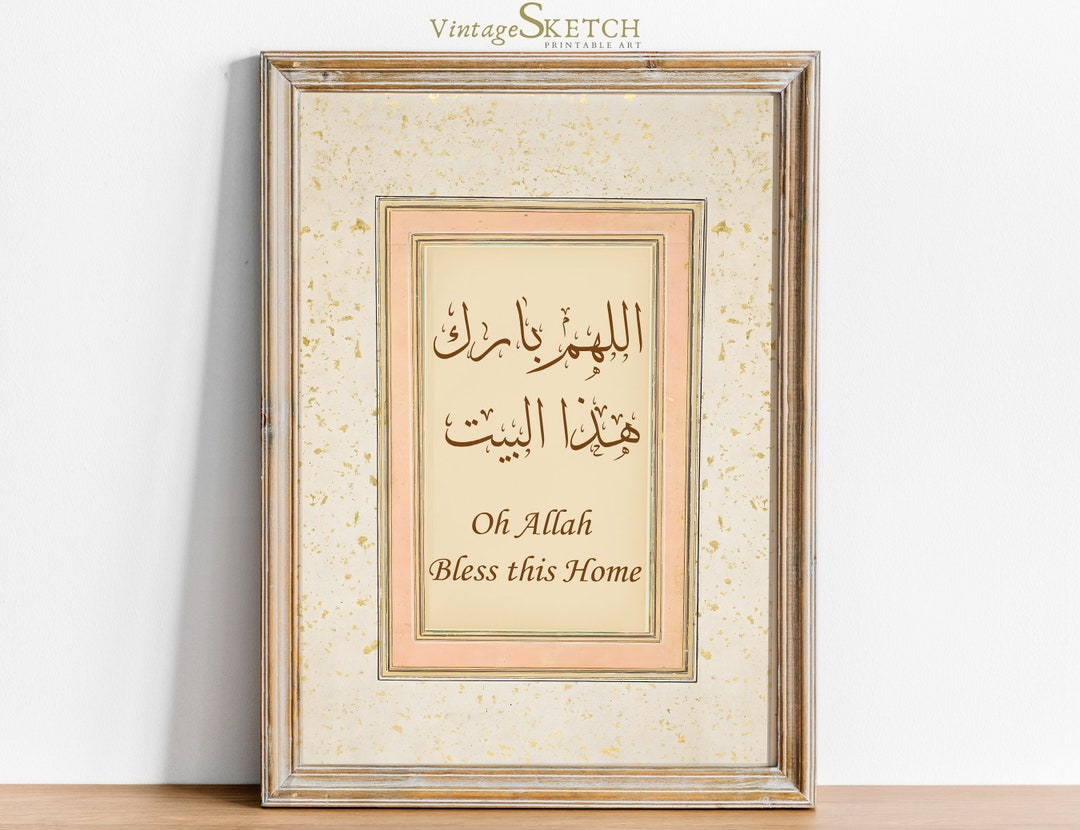 VintageSKETCH
PRINTABLE ART
اللهم بارك
هذا البيت
Oh Allah
Bless this Home